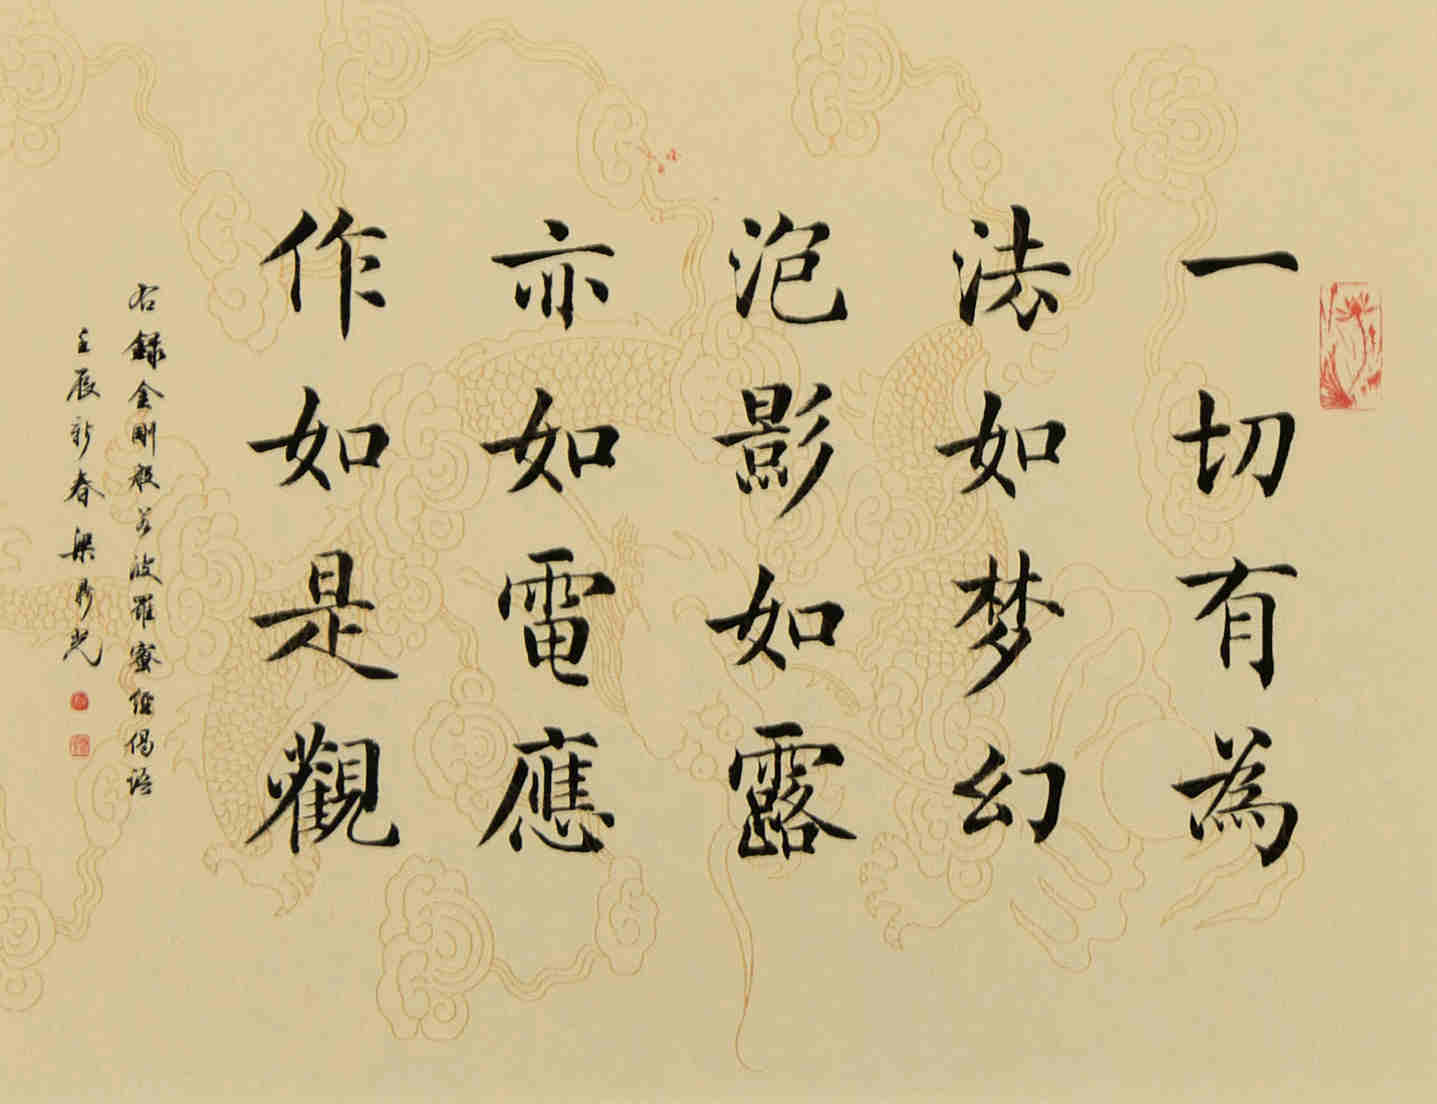 一切有為
法如梦幻
泡影如露
亦如電應
作如是觀
右録金剛般若波羅蜜經偈語
壬辰新春梁